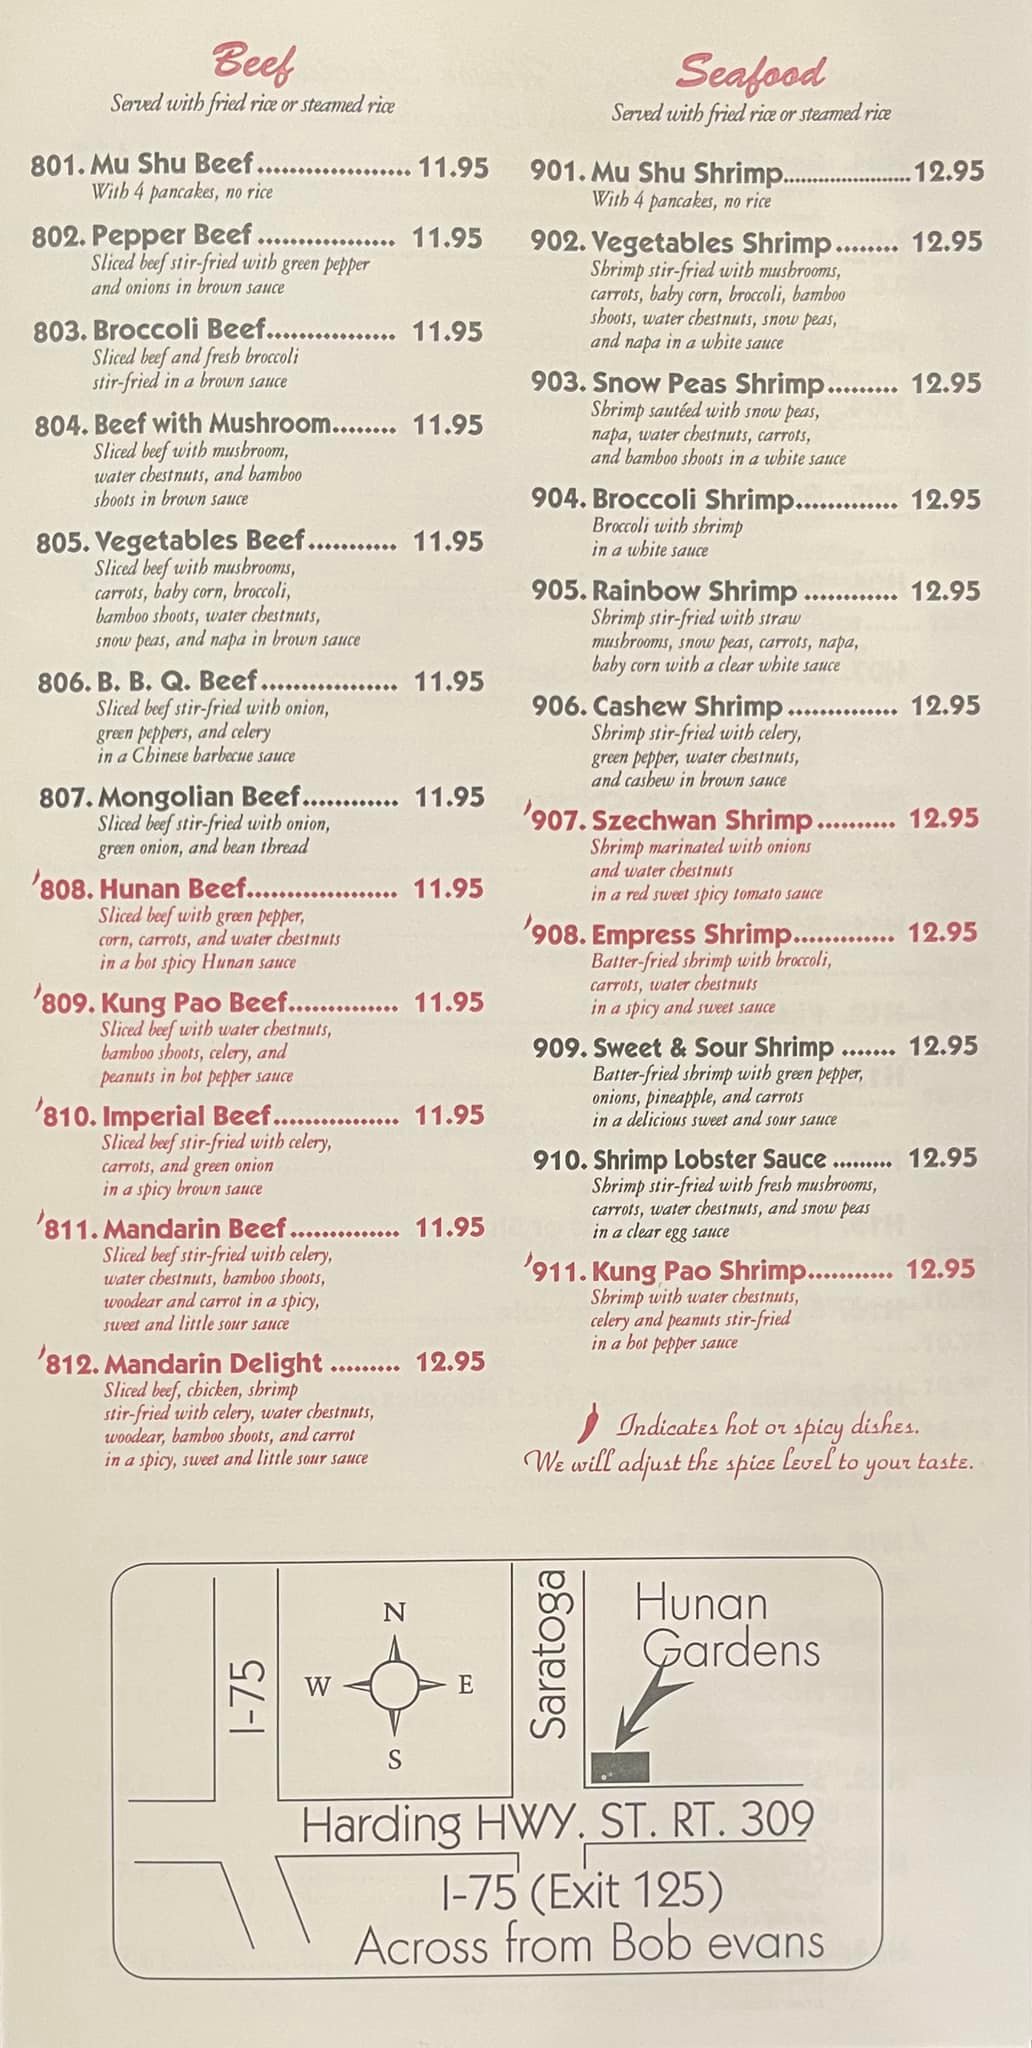 Beef
Served with fried rice or steamed rice
801. Mu Shu Beef................... 11.95
With 4 pancakes, no rice
802. Pepper Beef ................. 11.95
Sliced beef stir-fried with green pepper
and onions in brown sauce
803. Broccoli Beef................ 11.95
Sliced beef and fresh broccoli
stir-fried in a brown sauce
804. Beef with Mushroom........ 11.95
Sliced beef with mushroom,
water chestnuts, and bamboo
shoots in brown sauce
805. Vegetables Beef........... 11.95
Sliced beef with mushrooms,
carrots, baby corn, broccoli,
bamboo shoots, water chestnuts,
snow peas, and napa in brown sauce
806. B. B. Q. Beef................. 11.95
Sliced beef stir-fried with onion,
green peppers, and celery
in a Chinese barbecue sauce
807. Mongolian Beef............ 11.95
Sliced beef stir-fried with onion,
green onion, and bean thread
808. Hunan Beef................... 11.95
Sliced beef with green pepper,
corn, carrots, and water chestnuts
in a hot spicy Hunan sauce
809. Kung Pao Beef.............. 11.95
Sliced beef with water chestnuts,
bamboo shoots, celery, and
peanuts in hot pepper sauce
810. Imperial Beef................ 11.95
Sliced beef stir-fried with celery,
carrots, and green onion
in a spicy brown sauce
811. Mandarin Beef.............. 11.95
Sliced beef stir-fried with celery,
water chestnuts, bamboo shoots,
woodear and carrot in a spicy,
sweet and little sour sauce
812. Mandarin Delight ......... 12.95
Sliced beef, chicken, shrimp
stir-fried with celery, water chestnuts,
woodear, bamboo shoots, and carrot
in a spicy, sweet and little sour sauce
Seafood
Served with fried rice or steamed rice
901. Mu Shu Shrimp......................12.95
With 4 pancakes, no rice
902. Vegetables Shrimp........ 12.95
Shrimp stir-fried with mushrooms,
carrots, baby corn, broccoli, bamboo
shoots, water chestnuts, snow peas,
and napa in a white sauce
903. Snow Peas Shrimp......... 12.95
Shrimp sautéed with snow peas,
napa, water chestnuts, carrots,
and bamboo shoots in a white sauce
904. Broccoli Shrimp............. 12.95
Broccoli with shrimp
in a white sauce
905. Rainbow Shrimp ............ 12.95
Shrimp stir-fried with straw
mushrooms, snow peas, carrots, napa,
baby corn with a clear white sauce
906. Cashew Shrimp .............. 12.95
Shrimp stir-fried with celery,
green pepper, water chestnuts,
and cashew in brown sauce
907. Szechwan Shrimp .......... 12.95
Shrimp marinated with onions
and water chestnuts
in a red sweet spicy tomato sauce
908. Empress Shrimp............. 12.95
Batter-fried shrimp with broccoli,
carrots, water chestnuts
in a spicy and sweet sauce
909. Sweet & Sour Shrimp ....... 12.95
Batter-fried shrimp with green pepper,
onions, pineapple, and carrots
in a delicious sweet and sour sauce
910. Shrimp Lobster Sauce ......... 12.95
Shrimp stir-fried with fresh mushrooms,
carrots, water chestnuts, and snow peas
in a clear egg sauce
911. Kung Pao Shrimp........... 12.95
Shrimp with water chestnuts,
celery and peanuts stir-fried
in a hot pepper sauce
Indicates hot or spicy dishes.
We will adjust the spice level to your taste.
I-75
N
W E
S
Saratoga
Hunan
Gardens
Harding HWY. ST. RT. 309
I-75 (Exit 125)
Across from Bob evans